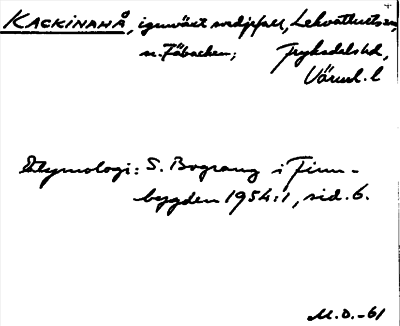 KACKINAHÅ, igenväxt svedjefall, Lekvattnets sn,
n. Fäbacken; Fryksdals hd,
Värml. l
Etymologi: S. Bograng i Finn-
bygden 1954:1, sid. 6.
M.O.-61